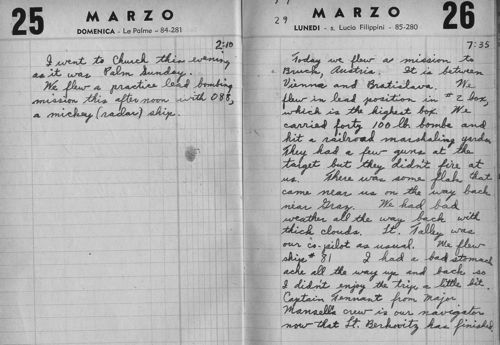 25
MARZO
DOMENICA - Le Palme - 84-281
2:10
I went to Church this evening
as it was Palm Sunday.
We flew a practice lead bombing
mission this afternoon with 088,
a mickey (radar) ship.
29
MARZO
26
LUNEDI - s. Lucio Filippini - 85-280
7:35
Today we flew a mission to
Bruck, Austria. It is between
Vienna and Bratislava. We
flew in lead position in #2 box,
which is the highest box. We
carried forty 100 lb. bombs and
hit a railroad marshaling yards.
They had a few guns at the
target but they didn't fire at
us. There was some flak that
came near us on the way back
near Graz. We had bad
weather all the way back with
thick clouds. Lt. Talley was
our co-pilot as usual. We flew
ship #81 I had a bad stomach
ache all the way up and back so
I didn't enjoy the trip a little bit.
Captain Tennant from Major
Mansell's crew is our navigator
now that Lt. Berkovitz has finished